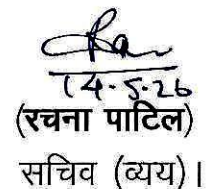 14.5.26
(रचना पाटिल)
सचिव (व्यय)।